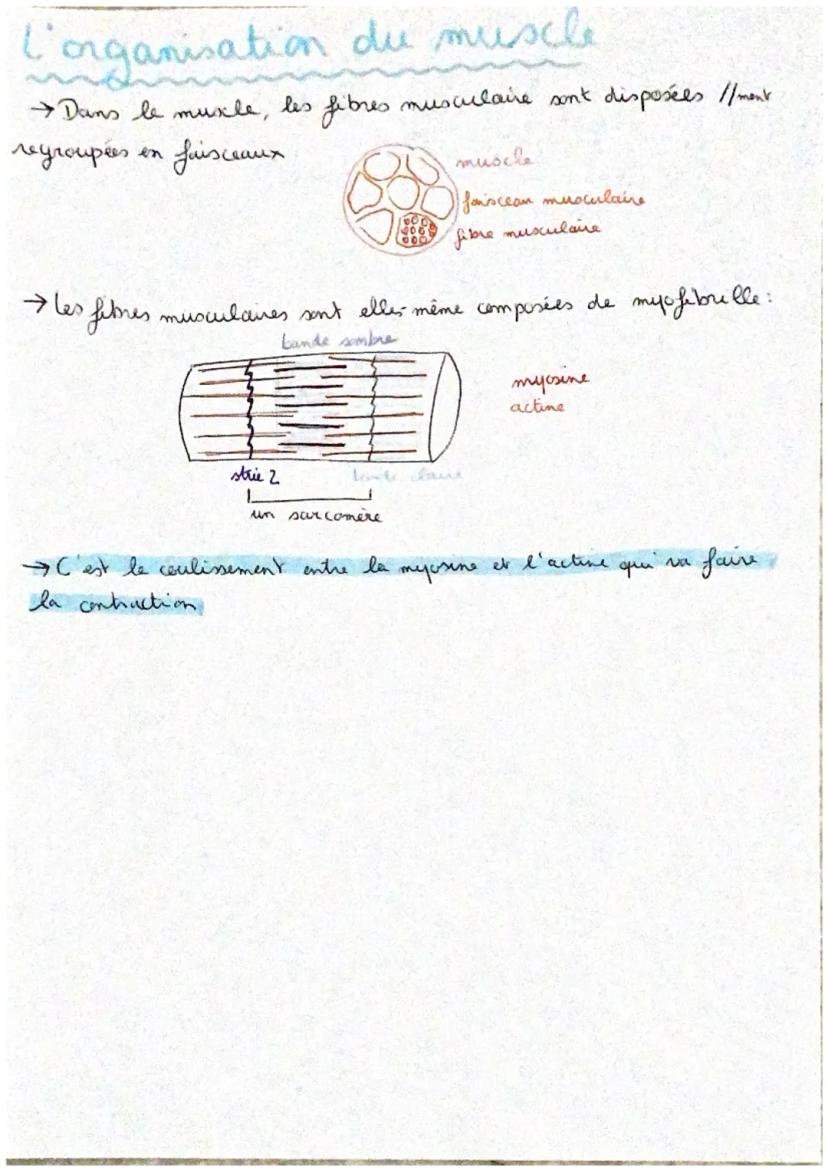 L'organisation du muscle
→ Dans le muscle, les fibres musculaire sont disposées //ment
regroupées en faisceaux
muscle
faisceau musculaire
fibre musculaire
→ Les fibres musculaires sont elles-même composées de myofibrille :
bande sombre
myosine
actine
strie Z
bande claire
un sarcomère
→ C'est le coulissement entre la myosine et l'actine qui va faire
la contraction